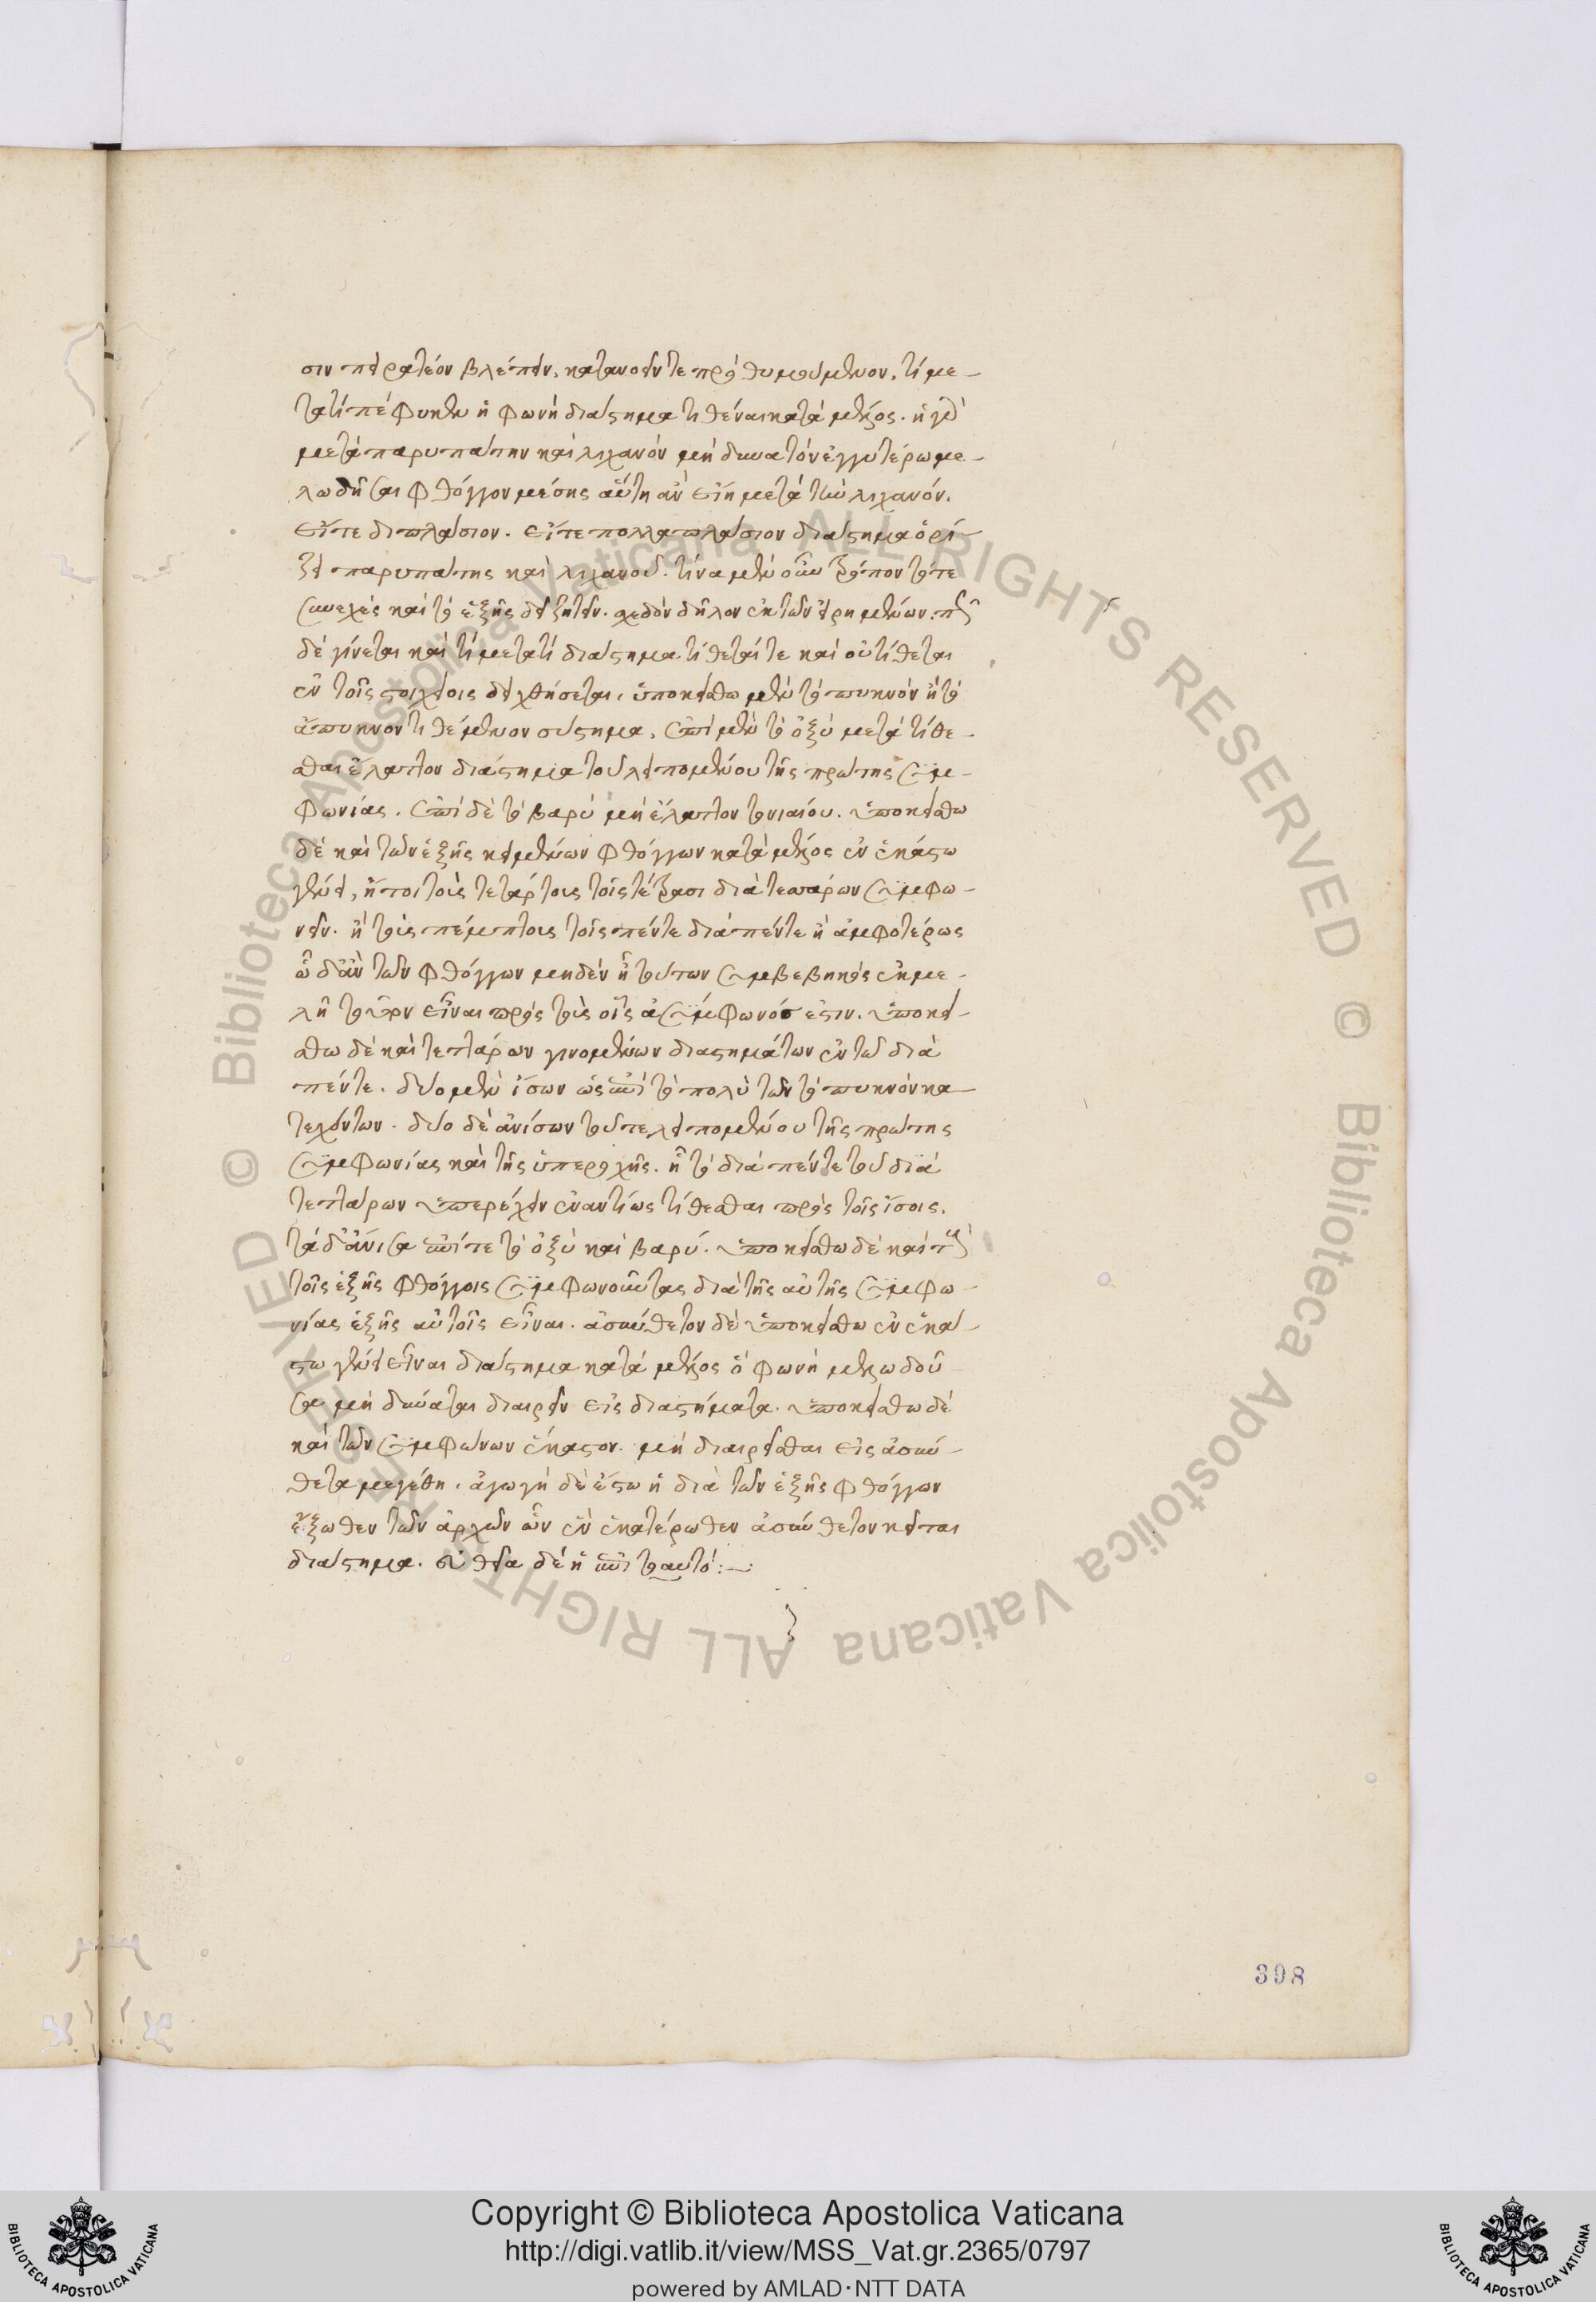 σιν πειρατέον βλέπειν, κατανοεῖν τε προθυμούμενον, τί με-
τὰ τί πέφυκεν ἡ φωνὴ διάστημα τιθέναι κατὰ μέλος. εἰ γὰρ
μετὰ παρυπάτην καὶ λιχανὸν μὴ δυνατὸν ἐγγυτέρω με-
λῳδῆσαι φθόγγον μέσης αὕτη ἂν εἴη μετὰ τὴν λιχανόν.
εἴτε διπλάσιον. εἴτε πολλαπλάσιον διάστημα ὁρί-
ζει παρυπάτης καὶ λιχανοῦ. τίνα μὲν οὖν τρόπον τό τε
συνεχὲς καὶ τὸ ἑξῆς δεῖ ζητεῖν. σχεδὸν δῆλον ἐκ τῶν εἰρημένων. πῶς
δὲ γίνεται καὶ τί μετὰ τί διάστημα τίθεταί τε καὶ οὐ τίθεται
ἐν τοῖς στοιχείοις δειχθήσεται. ὑποκείσθω μὲν τὸ πυκνὸν ἢ τὸ
ἄπυκνον τιθέμενον σύστημα. ἐπὶ μὲν τὸ ὀξὺ μετατίθε-
σθαι ἔλαττον διάστημα τοῦ λειπομένου τῆς πρώτης συμ-
φωνίας. ἐπὶ δὲ τὸ βαρὺ μὴ ἔλαττον τονιαίου. ὑποκείσθω
δὲ καὶ τῶν ἑξῆς κειμένων φθόγγων κατὰ μέλος ἐν ἑκάστω
γένει, ἤτοι τοὺς τετάρτους τοῖς τέτρασι διὰ τεσσάρων συμφω-
νεῖν. ἢ τοὺς πέμπτους τοῖς πέντε διὰ πέντε ἢ ἀμφοτέρως
ᾧ δ' ἂν τῶν φθόγγων μηδὲν ᾖ τούτων συμβεβηκὸς ἐκμε-
λῆ τοῦτον εἶναι πρὸς τοὺς οἷς ἀσύμφωνός ἐστιν. ὑποκεί-
σθω δὲ καὶ τεττάρων γινομένων διαστημάτων ἐν τῷ διὰ
πέντε. δύο μὲν ἴσων ὡς ἐπὶ τὸ πολὺ τῶν τὸ πυκνὸν κα-
τεχόντων. δύο δὲ ἀνίσων τοῦ τε λειπομένου τῆς πρώτης
συμφωνίας καὶ τῆς ὑπεροχῆς. ᾗ τὸ διὰ πέντε τοῦ διὰ
τεττάρων ὑπερέχειν ἐναντίως τίθεσθαι πρὸς τοῖς ἴσοις.
τὰ δ' ἄνισα ἐπί τε τὸ ὀξὺ καὶ βαρύ. ὑποκείσθω δὲ καὶ τοὺς
τοῖς ἑξῆς φθόγγοις συμφωνοῦντας διὰ τῆς αὐτῆς συμφω-
νίας ἑξῆς αὐτοῖς εἶναι. ἀσύνθετον δὲ ὑποκείσθω ἐν ἑκά-
στω γένει εἶναι διάστημα κατὰ μέλος ὃ φωνὴ μελῳδοῦ-
σα μὴ δύναται διαιρεῖν εἰς διαστήματα. ὑποκείσθω δὲ
καὶ τῶν συμφώνων ἕκαστον. μὴ διαιρεῖσθαι εἰς ἀσύν-
θετα μεγέθη. ἀγωγὴ δὲ ἔστω ἡ διὰ τῶν ἑξῆς φθόγγων
ἔξωθεν τῶν ἀρχῶν ὧν ἓν ἑκατέρωθεν ἀσύνθετον κεῖται
διάστημα. εὐθεῖα δὲ ἡ ἐπὶ τὸ αὐτό:-
398
Copyright © Biblioteca Apostolica Vaticana
http://digi.vatlib.it/view/MSS_Vat.gr.2365/0797
powered by AMLAD·NTT DATA
BIBLIOTECA APOSTOLICA VATICANA
BIBLIOTECA APOSTOLICA VATICANA
© Biblioteca Apostolica Vaticana ALL RIGHTS RESERVED © Biblioteca Apostolica Vaticana ALL RIGHTS RESERVED